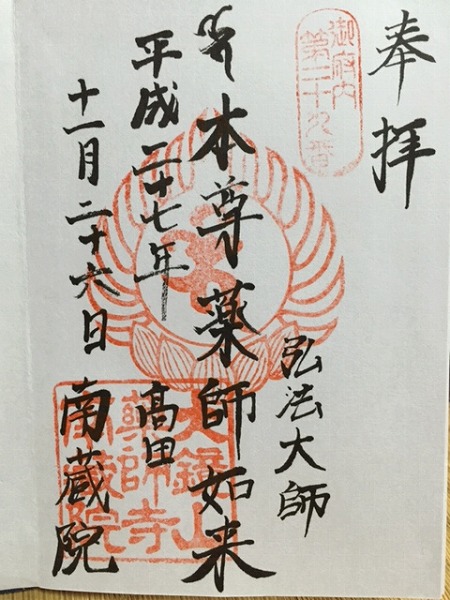 奉拝
御府内
第二十九番
弘法大師
本尊薬師如来
平成二十七年
高田
十一月二十六日
南蔵院
大鏡山
薬師寺
南蔵院